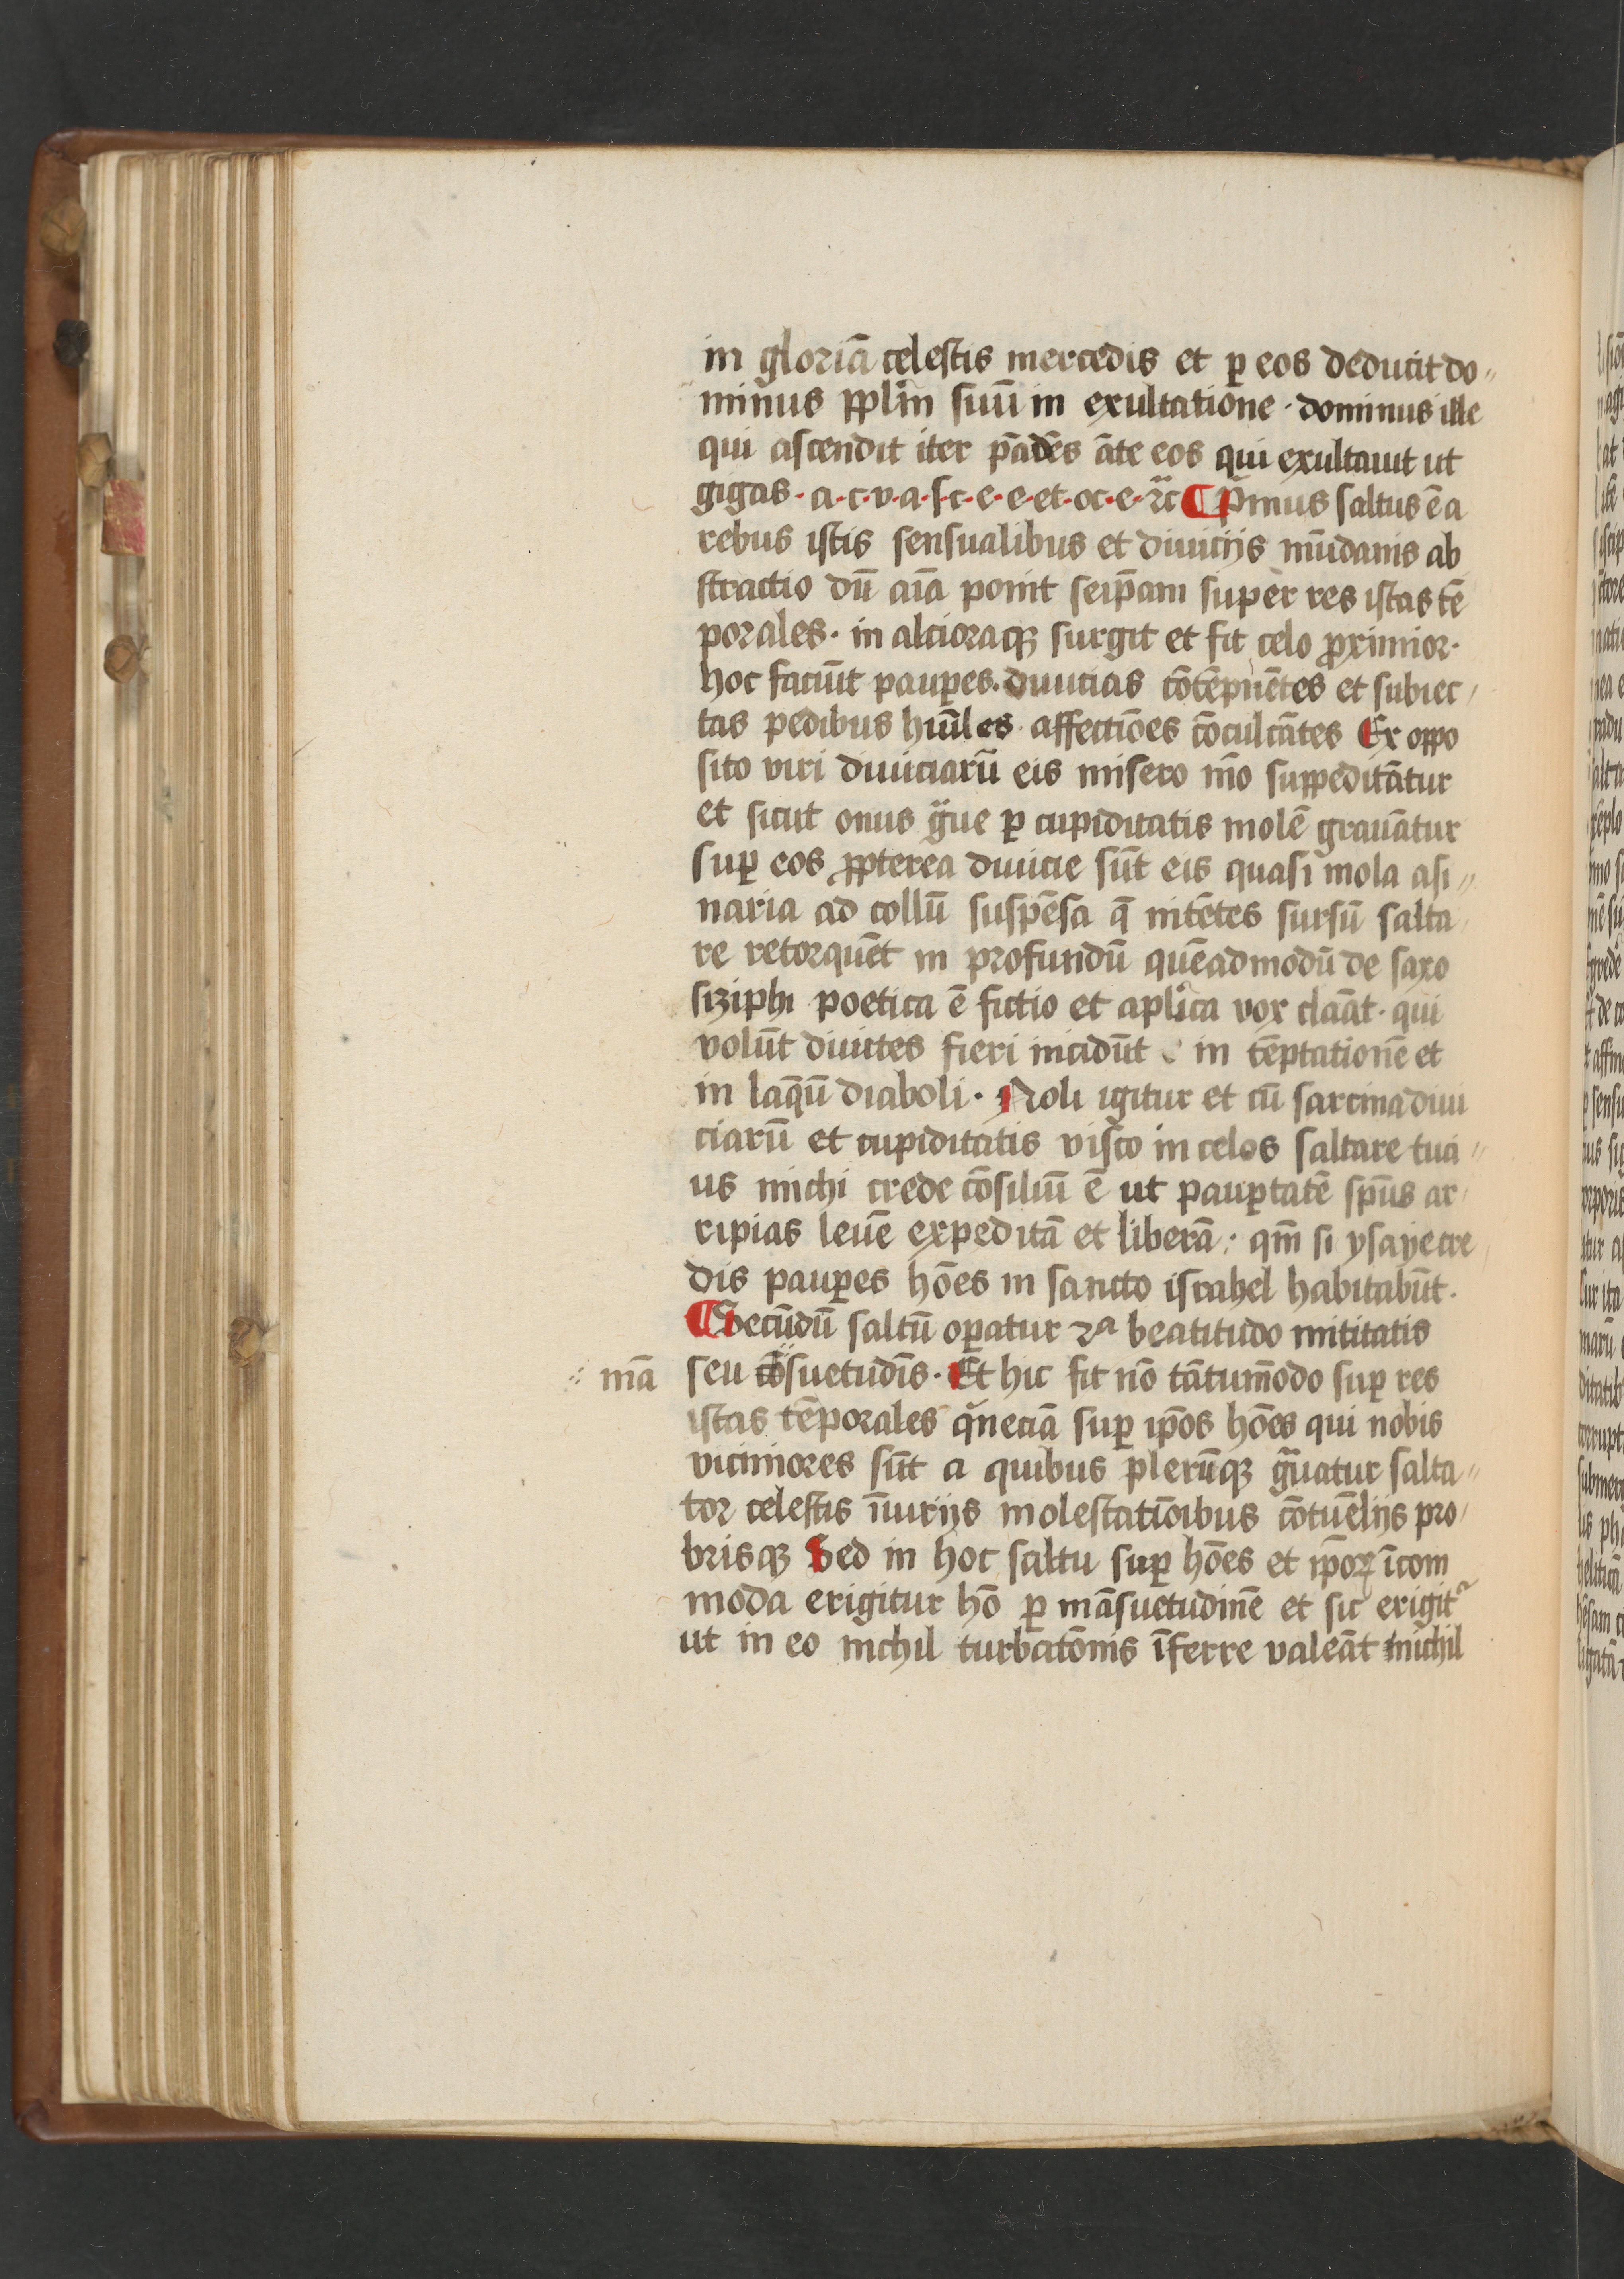 in gloriā celestis mercedis et ꝑ eos deducit do〃
minus pplm̄ suū in exultatione · dominus ille
qui ascendit iter pādēs āte eos qui exultauit ut
gigas · a·c·v·a·s·c·e·e·et·oc·e· ⁊c̄ ¶ Pͥmus saltus ē a
rebus istis sensualibus et diuicijs mūdanis ab
stractio dū aīa ponit seip̄am super res istas tē
porales · in alcioraqꝫ surgit et fit celo ꝓximior·
hoc faciūt pauꝑes · diuicias cōtēpnētes et subiec/
tas pedibus hūiles affectiōes cōculcātes Ex oppo
sito viri diuiciarū eis misero mō suppeditātur
et sicut onus gᷓue ꝑ cupiditatis molē grauātur
suꝑ eos ꝓpterea diuicie sūt eis quasi mola asi〃
naria ad collū suspēsa q̄ nitētes sursū salta/
re retorquēt in profundū quēadmodū de saxo
siziphi poetica ē fictio et aplīca vox clāat · qui
volūt diuites fieri incidūt in tēptationē et
in laq̄ū diaboli · Noli igitur et cū sarcina diui
ciarū et cupiditatis visco in celos saltare tuci〃
us michi crede cōsiliū ē ut pauꝑtatē sp̄us ar/
ripias leuē expeditā et liberā : qm̄ si ysaye cre/
dis pauꝑes hōes in sancto israhel habitabūt ·
¶ Secūdū saltū oꝑatur 2ᵃ beatitudo mititatis
mā seu cōsuetudīs · Et hic fit nō tātūmodo suꝑ res
istas tēporales qͥnecia suꝑ ip̄os hōes qui nobis
viciniores sūt a quibus plerūqꝫ gᷓuatur salta〃
tor celestis īiurijs molestatiōibus cōtūelijs pro/
brisqꝫ Sed in hoc saltu suꝑ hōes et ip̄oꝝ īcom
moda erigitur hō ꝑ māsuetudinē et sic erigitʳ
ut in eo nichil turbatōnis īferre valeāt nichil